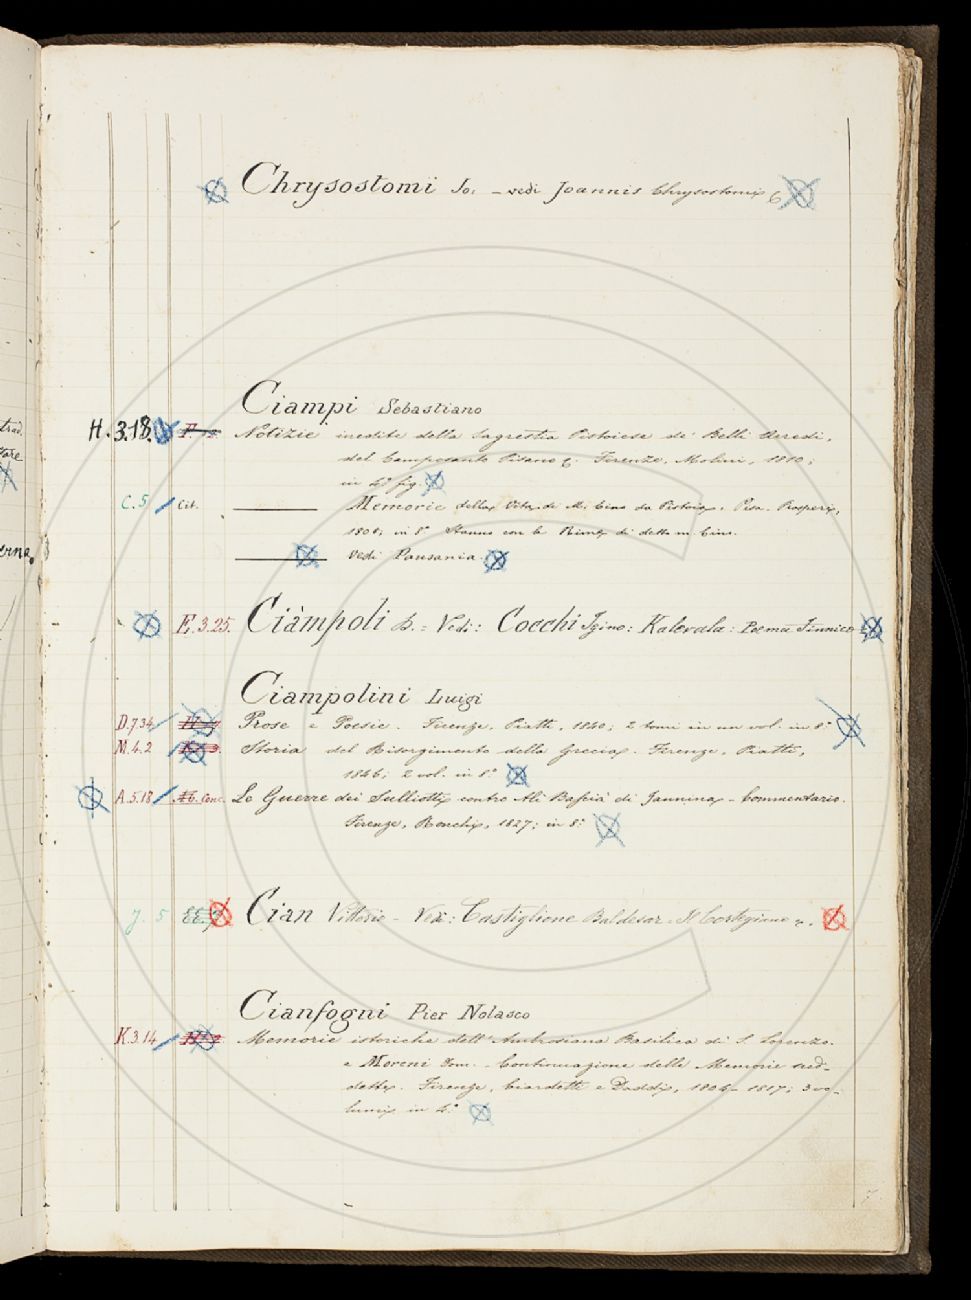 Chrysostomi Jo: – vedi Joannis Chrysostomi
Ciampi Sebastiano
H. 3.18. Notizie inedite della Sagrestia Pistoiese de' Belli Arredi,
del Camposanto Pisano &. Firenze, Molini, 1810;
in 4° fig.
C. 5 Cit. Memorie della Vita di M. Cino da Pistoia. Pisa. Prosperi,
1808; in 8° Stanno con le Rime di detto m. Cino.
vedi Pausania
E. 3.25. Ciàmpoli D. = Vedi: Cocchi Igino: Kalevala: Poema Finnico
Ciampolini Luigi
D.7.34 Prose e Poesie. Firenze, Piatti, 1840; 2 tomi in un vol. in 8°
M.4.2 Storia del Risorgimento della Grecia. Firenze, Piatti,
1846; 2 vol. in 8°
A.5.18 Le Guerre dei Sulliotti contro Ali Bascià di Jannina – Commentario.
Firenze, Ronchi, 1827; in 8°
J. 5 Cian Vittorio – Ved: Castiglione Baldesar. Il Cortegiano
Cianfogni Pier Nolasco
K.3.14 Memorie istoriche dell'Ambrosiana Basilica di S. Lorenzo.
e Moreni Dom. Continuazione delle Memorie sud-
dette. Firenze, Ciardetti e Daddi, 1804–1817; 3 vo-
lumi in 4°
7